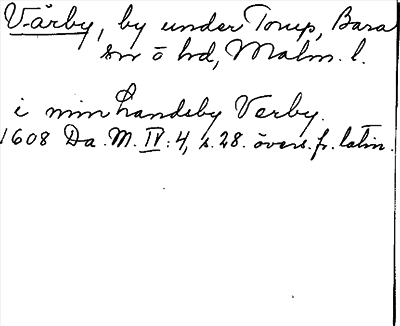 Värby, by under Torup, Bara
sn ö hd, Malm. l.
i min handsby Verby.
1608 Da. M. IV: 4, s. 28. övers. fr. latin.